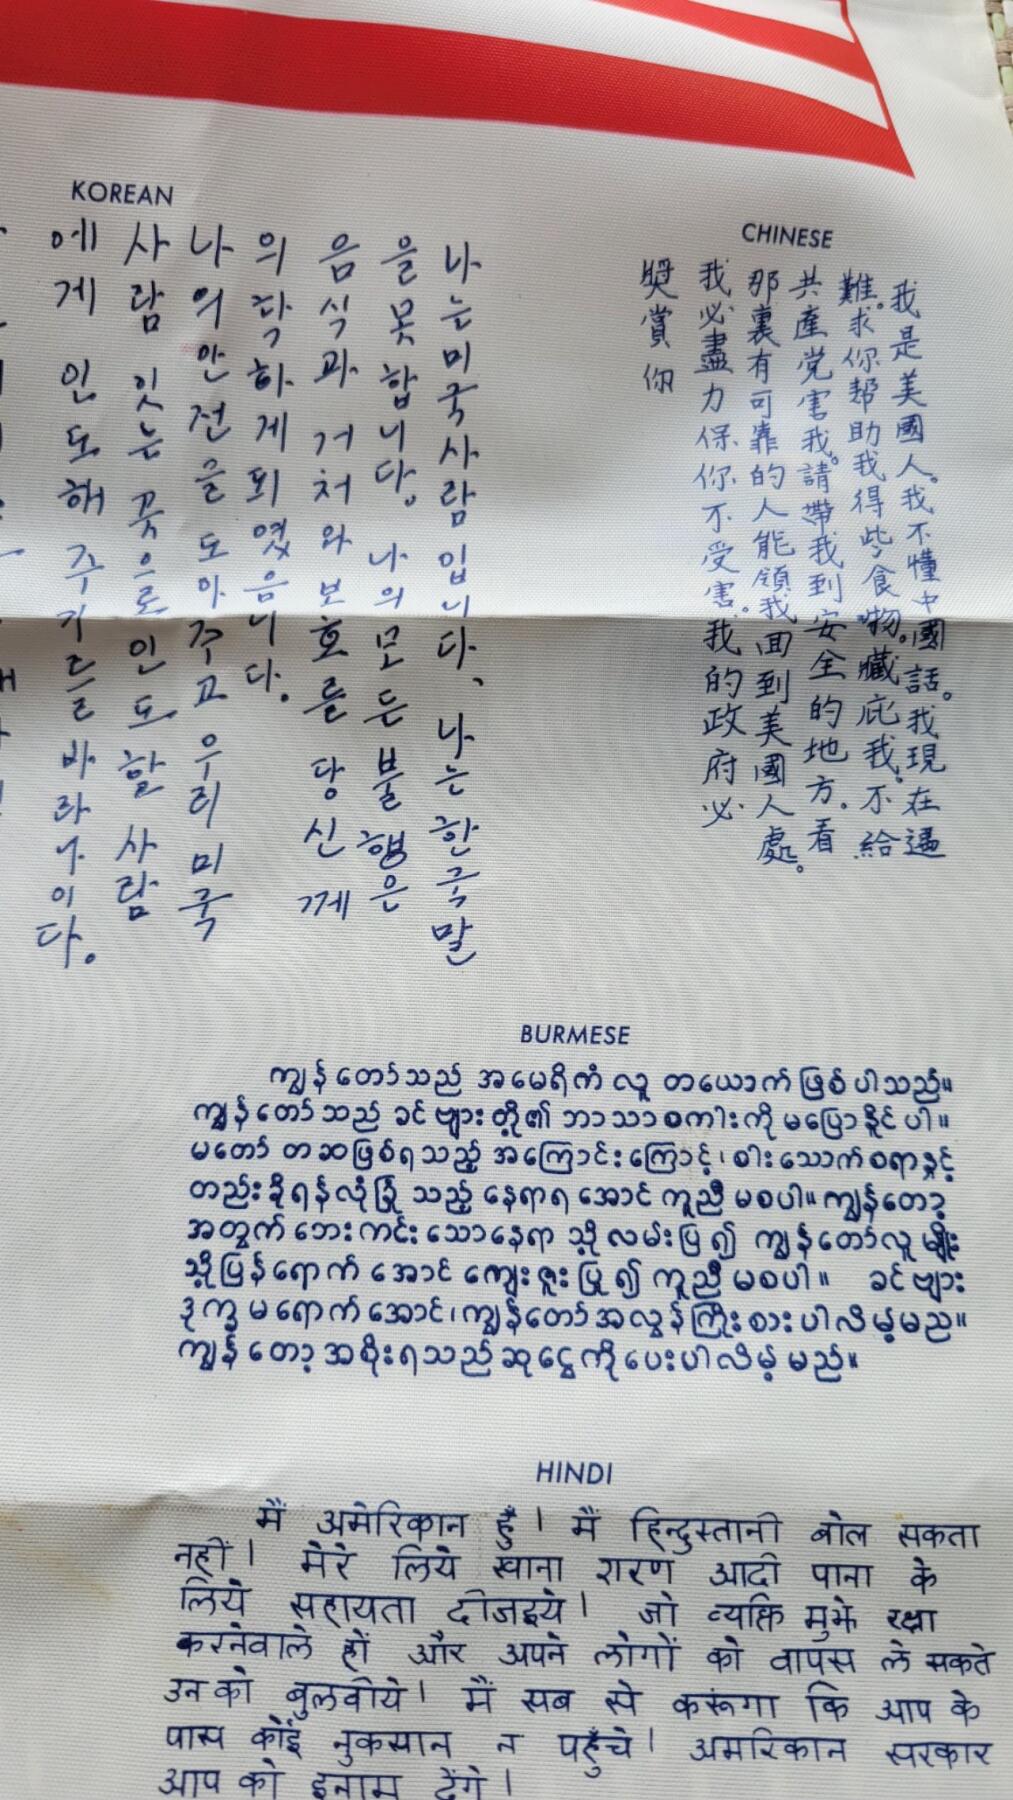 KOREAN
나는미국사람입니다、 나는한국말
을못합니다。 나의모든불행은
음식과 거처와 보호를 당신께
의탁하게되였음니다.
나의안전을도아주고 우리미국
사람 잇는 곳으로인도할 사람
에게 인도해 주기를 바라나이다。
CHINESE
我是美國人。我不懂中國話。我現在遇
難。求你帮助我得些食物。藏庇我。不給
共產党害我。請帶我到安全的地方。看
那裏有可靠的人能領我回到美國人處。
我必盡力保你不受害。我的政府必
獎賞你
BURMESE
ကျွန်တော်သည် အမေရိကံ လူ တယောက် ဖြစ်ပါသည်။
ကျွန်တော်သည် ခင်ဗျားတို့၏ ဘာသာစကါးကို မပြောနိုင်ပါ။
မတော်တဆဖြစ်ရသည့် အကြောင်းကြောင့်၊ စါးသောက်စရာနှင့်
တည်းခိုရန်လုံခြုံ သည့် နေရာရအောင် ကူညီ မစပါ။ ကျွန်တော့်
အတွက် ဘေးကင်းသောနေရာ သို့ လမ်းပြ၍ ကျွန်တော်လူမျိုး
သို့ပြန်ရောက် အောင် ကျေးဇူးပြု၍ ကူညီ မစပါ။ ခင်ဗျား
ဒုက္ခမရောက်အောင်၊ ကျွန်တော်အလွန်ကြိုးစားပါလိမ့်မည။
ကျွန်တော့်အစိုးရသည်ဆုငွေကိုပေးပါလိမ့်မည်။
HINDI
मैं अमेरिकान हुँ। मैं हिन्दुस्तानी बोल सकता
नहीं। मेरे लिये खाना शरण आदी पाना के
लिये सहायता दीजइये। जो व्यक्ति मुझे रक्षा
करनेवाले हों और अपने लोगों को वापस ले सकते
उनको बुलवीये। मैं सब से करूंगा कि आप के
पास कोई नुकसान न पहुँचे। अमरिकान सरकार
आप को इनाम देंगे।